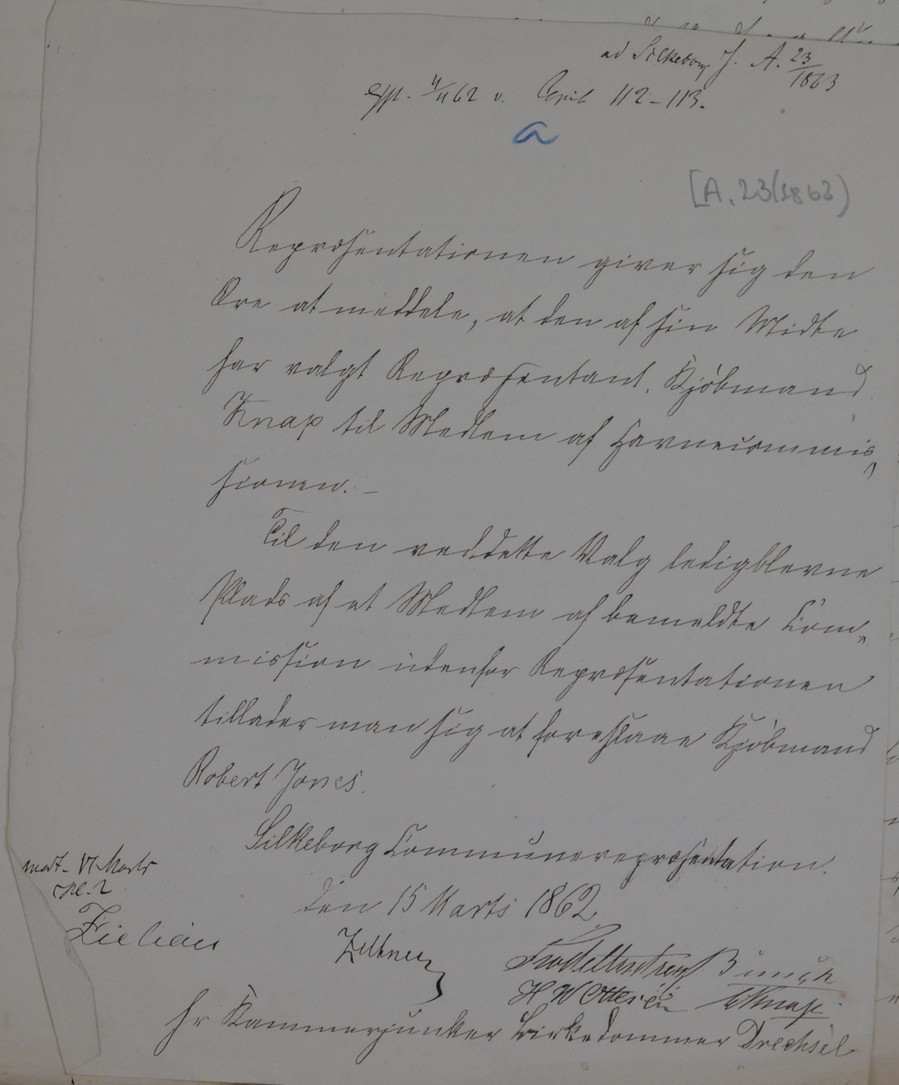 ad Silkeborg J. A. 23/1863
112-113.
a
[A. 23/1863)
Repræsentationen giver sig den
Ære at meddele, at den af sin Midte
har valgt Repræsentant, Kjøbmand
Knap til Medlem af Havnecommis
sionen. -
Til den ved dette Valg ledigblevne
Plads af et Medlem af bemeldte Com
mission udenfor Repræsentationen
tillader man sig at foreslaae Kjøbmand
Robert Jones.
Silkeborg Communerepræsentation.
den 15 Marts 1862
modt. 17 Marts
Zeltner
Bünch
H W Ottesen Knap
Hr Kammerjunker Birkedommer Drechsel